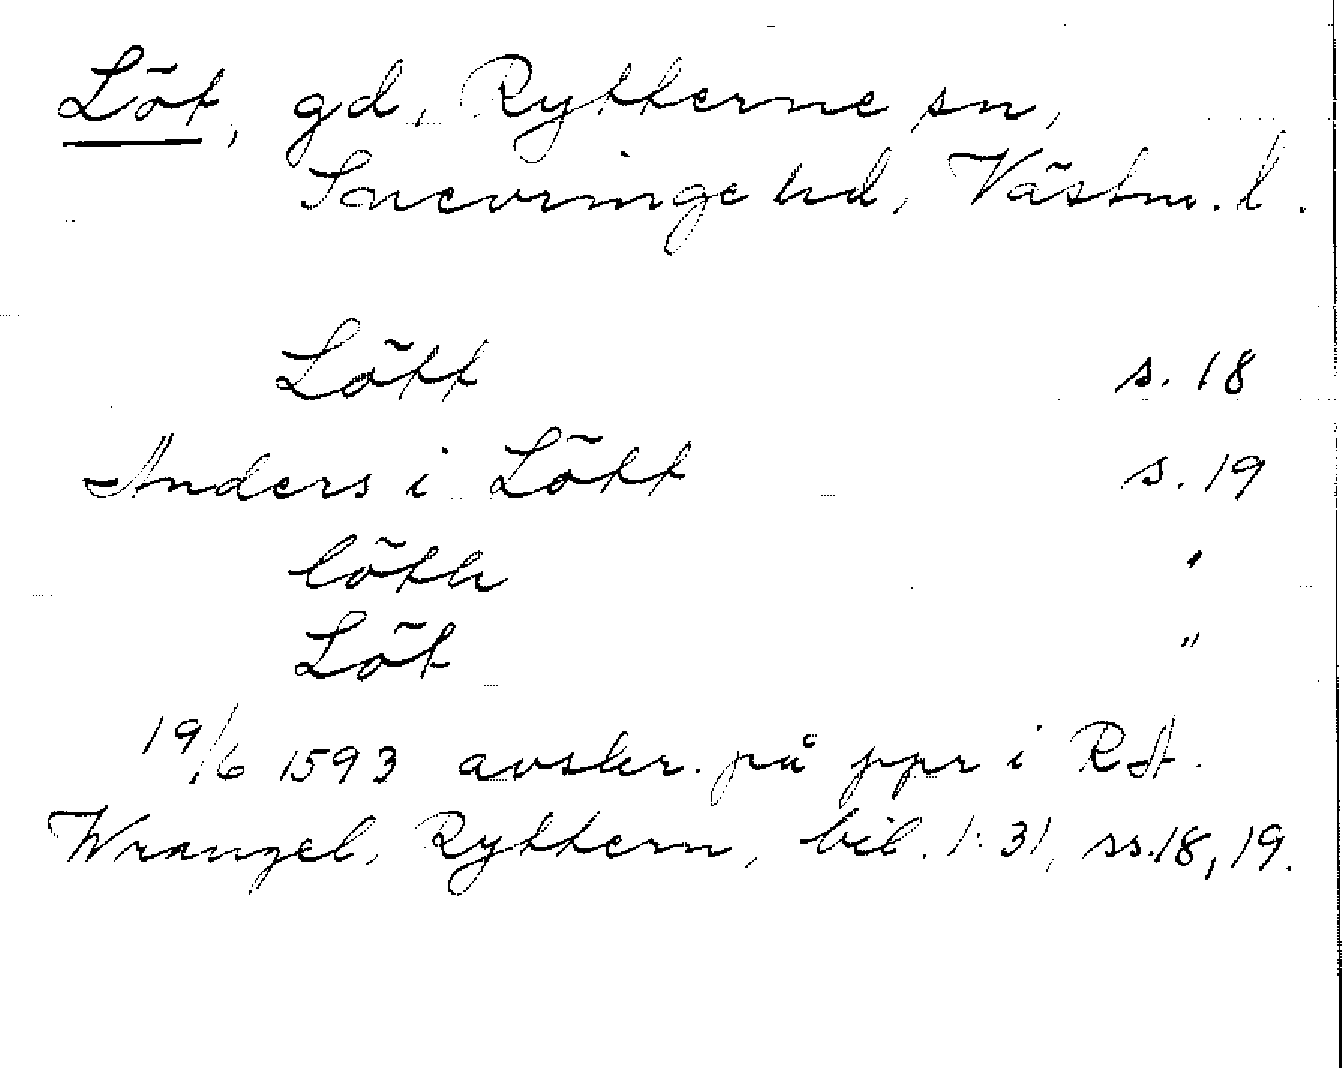 Löt, gd, Rytterne sn,
Snevringe hd, Västm. l.
Lött s. 18
Anders i Lött s. 19
löth "
Löt "
19/6 1593 avskr. på ppr i RA.
Wrangel, Ryttern, bil. 1:31, ss.18,19.